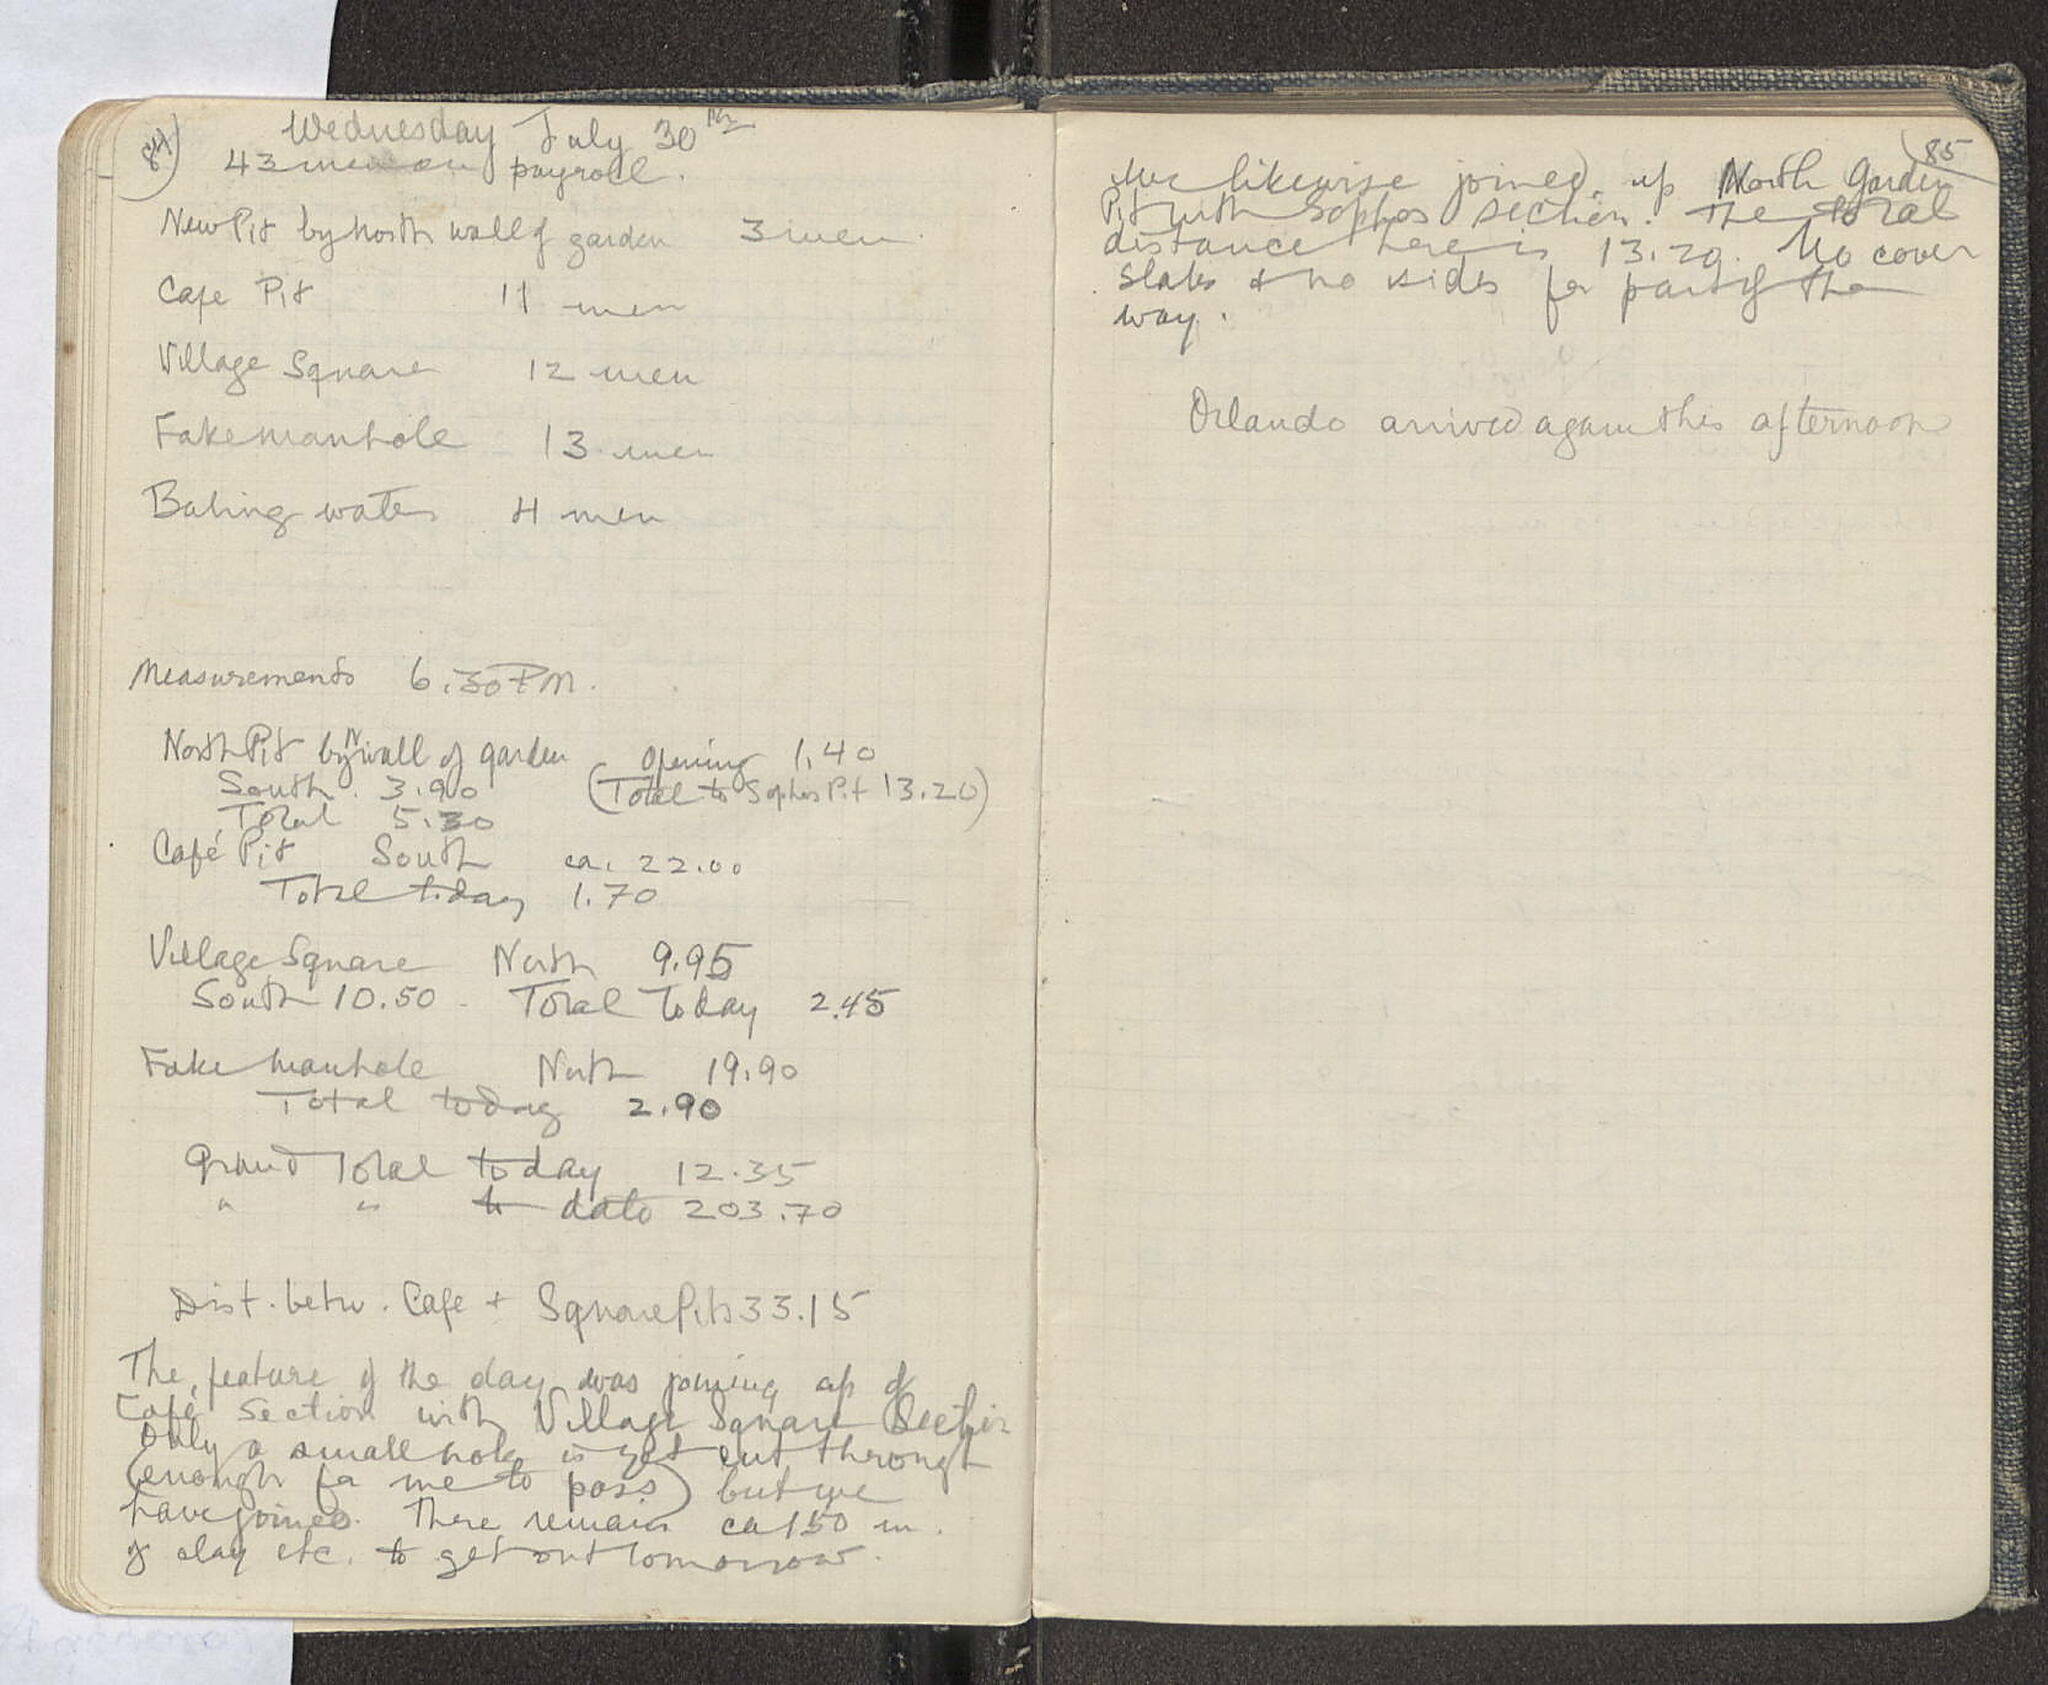 84)
Wednesday July 30th
43 men on payroll.
New Pit by North wall of garden 3 men.
Cafe Pit 11 men
Village Square 12 men
Fake manhole 13 men
Baling water 4 men
Measurements 6.30 PM.
North Pit by N wall of garden opening 1.40
South. 3.90 (Total to Sophos Pit 13.20)
Total 5.30
Café Pit South ca. 22.00
Total today 1.70
Village Square North 9.95
South 10.50 - Total Today 2.45
Fake manhole North 19.90
Total today 2.90
Grand Total today 12.35
" " to date 203.70
Dist. betw. Cafe + Square Pits 33.15
The feature of the day was joining up of
Café Section with Village Square Section
Only a small hole is yet cut through
(enough for me to pass) but we
have joined. There remains ca 1.50 m.
of clay etc. to get out tomorrow.
(85
We likewise joined up North Garden
Pit with Sophos section. The total
distance here is 13.20. No cover
slabs & no sides for part of the
way.
Orlando arrived again this afternoon